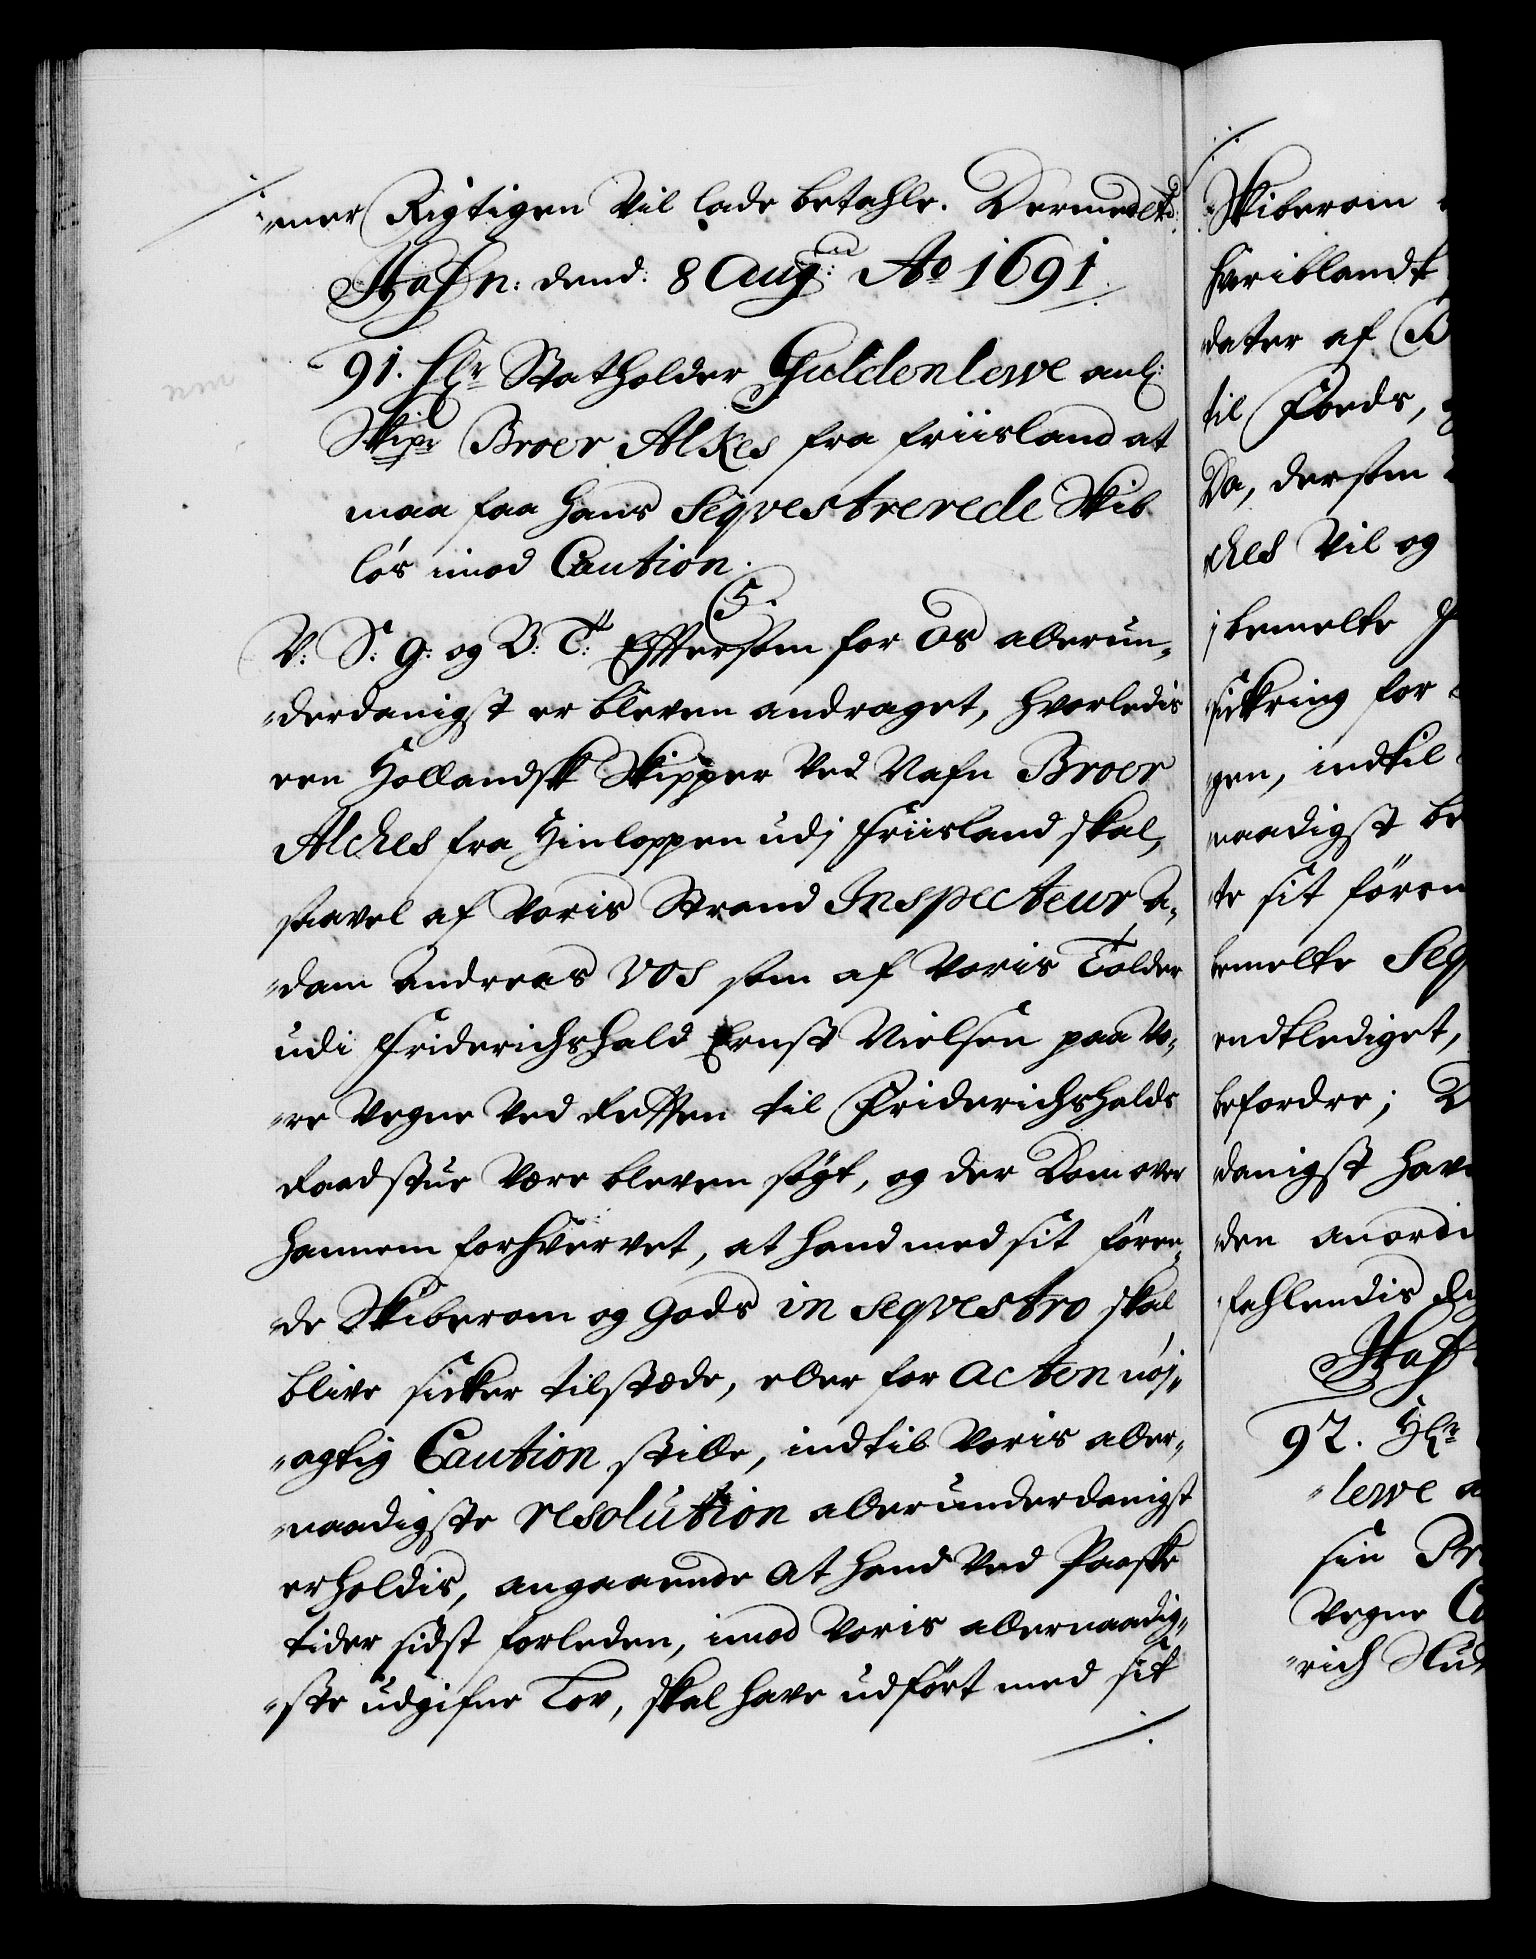 „mer Rigtigen vil lade betahle. Dermed etc:
Hafn: dend: 8 Aug: Ao 1691
91. Hr Statholder Guldenlewe anl:
Skipr Broer Alkes fra friisland at
maa faa hans Seqvestrerede Skib
løs imod Caution.
V: S: G: og B: T: Efftersom for Os allerun„
„derdanigst er bleven andraget, hvorledis
een Hollandsk Skipper ved Nafn Broer
Alches fra Hinloppen udj Friisland skal,
saavel af Voris Strand Inspecteur A„
„dam Andreas Vos som af Voris Tolder
udi Friderichshald Ernst Nielsen paa Vo„
„re Vegne ved Retten til Friderichshalds
Raadstue være bleven søgt, og der Dom over
hannem forhvervet, at hand med sit føren„
„de Skiberom og Gods in seqvestro skal
blive sicker tilstæde, eller for Acten nøj„
„agtig Caution stille, indtil Voris aller„
„naadigste resolution allerunderdanigst
erholdis, angaaende at hand ved Paaske
tider sidst forleden, imod Voris allernaadig„
„ste udgifne Lov, skal have udført med sit
Skiberom
hvriblandt
dater af
til Fords,
Da, dersom
ches vil og
jbemelte
sickring for
gen, indtil
naadigst be
te sit føren
bemelte Seq
endtlediget,
befordre;
danigst hav
den anordi
fehlendis
Haf
92. Hr
„lewe a
sin Pr
Vegne
„rich